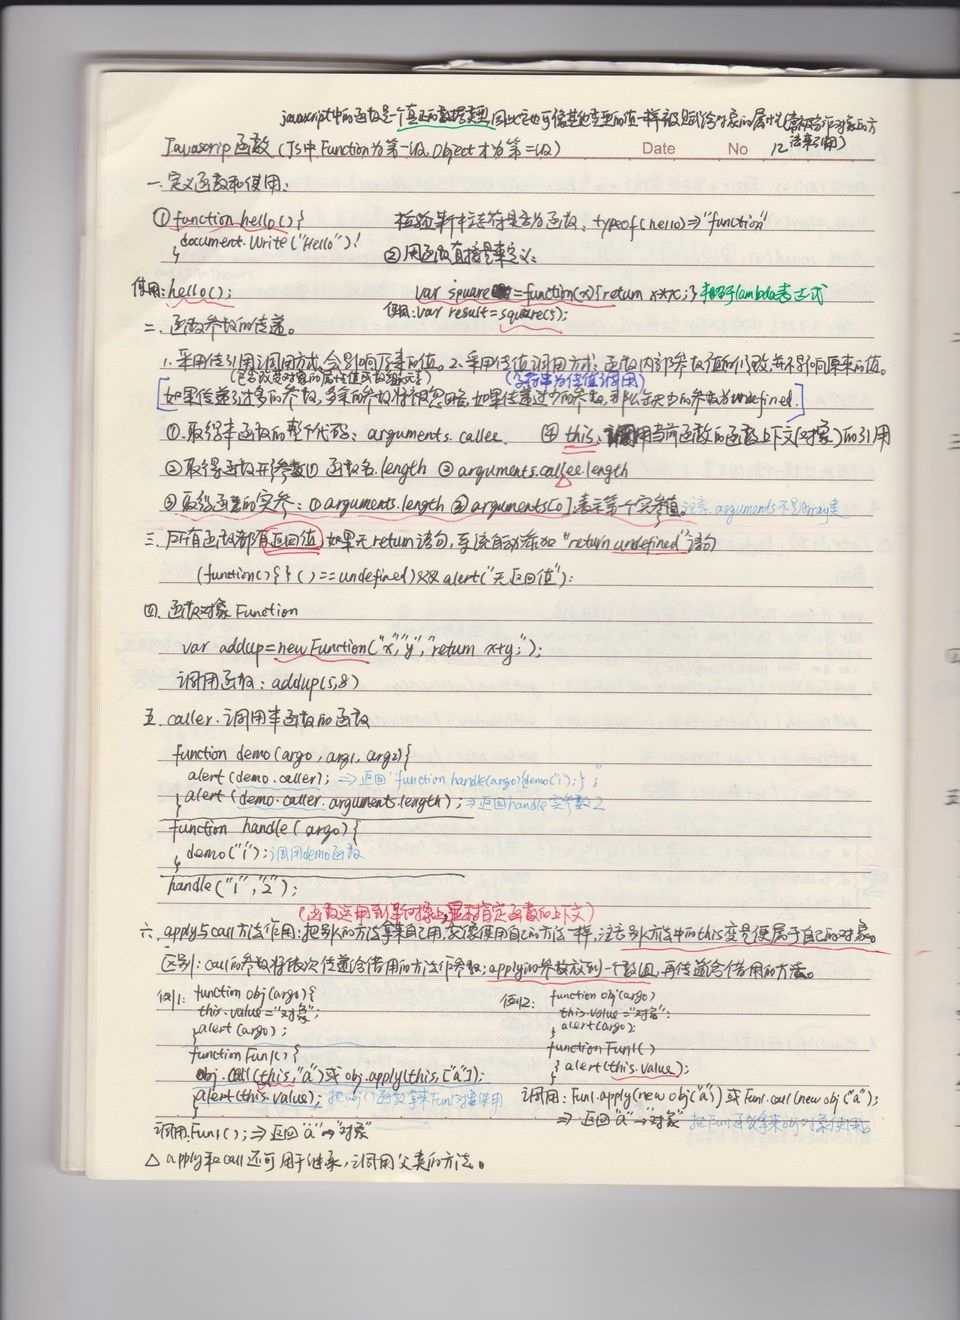 javascript中的函数是一个真正的数据类型,因此它也可像其它变量的值一样被赋给对象的属性(常被称作对象的方法来引用)
Javascrip函数(JS中Function为第一级,Object才为第二级) Date No 12
一.定义函数和使用:
①function hello(){ 检验某标志符是否为函数,typeof(hello)⇒"function"
document.Write("Hello")!
} ②用函数直接量来定义:
使用:hello(); var square=function(x){return x*x;} 相当于lambda表达式
使用:var result=square(5);
二.函数参数的传递。
1.采用传引用调用方式,会影响原来的值。2.采用传值调用方式:函数内部参数值的修改,并不影响原来的值。
(包含改变对象的属性值或数组元素) (字符串为传值引用)
[如果传递了过多的参数,多余的参数将被忽略,如果传递过少的参数,那么缺少的参数为undefined.]
①.取得本函数的整个代码:arguments.callee. ④this,调用当前函数的函数上下文(对象)的引用
②取得函数形参数① 函数名.length ②arguments.callee.length
③取得函数的实参:①arguments.length ②arguments[0]表示第一个实参值.注意,arguments不是Array类
三.所有函数都有返回值,如果无return语句,系统自动添加"return undefined"语句
(function(){}()==undefined)&&alert("无返回值");
四.函数对象Function
var addup=new Function("x","y","return x+y;");
调用函数:addup(5,8)
五.caller.调用本函数的函数
function demo(arg0,arg1,arg2){
alert(demo.caller); ⇒返回"function handle(arg0){demo("1");}"
alert(demo.caller.arguments.length);⇒返回handle实参数2
}
function handle(arg0){
demo("1");调用demo函数
}
handle("1","2");
(函数运用到某个对象上,显示指定函数的上下文)
六.apply与call方法作用:把别人的方法拿来自己用,就像使用自己的方法一样,注意别人方法中的this变量便属于自己的对象。
区别:call的参数将依次传递给借用的方法作参数;apply的参数放到一个数组,再传递给借用的方法。
例1: function obj(arg0){ 例2: function obj(arg0)
this.value="对象"; this.value="对象":
alert(arg0); alert(arg0):
} }
function Fun1(){ function Fun1()
obj.call(this,"a")或obj.apply(this,["a"]); { alert(this.value);
alert(this.value); 把obj()函数拿来Fun1对象使用 }
} 调用:Fun1.apply(new obj("a"))或Fun1.call(new obj("a");
调用Fun1();⇒返回"a"→"对象" ⇒返回"a"→"对象" 把Fun1函数拿来obj对象使用。
△ apply和call还可用于继承,调用父类的方法。